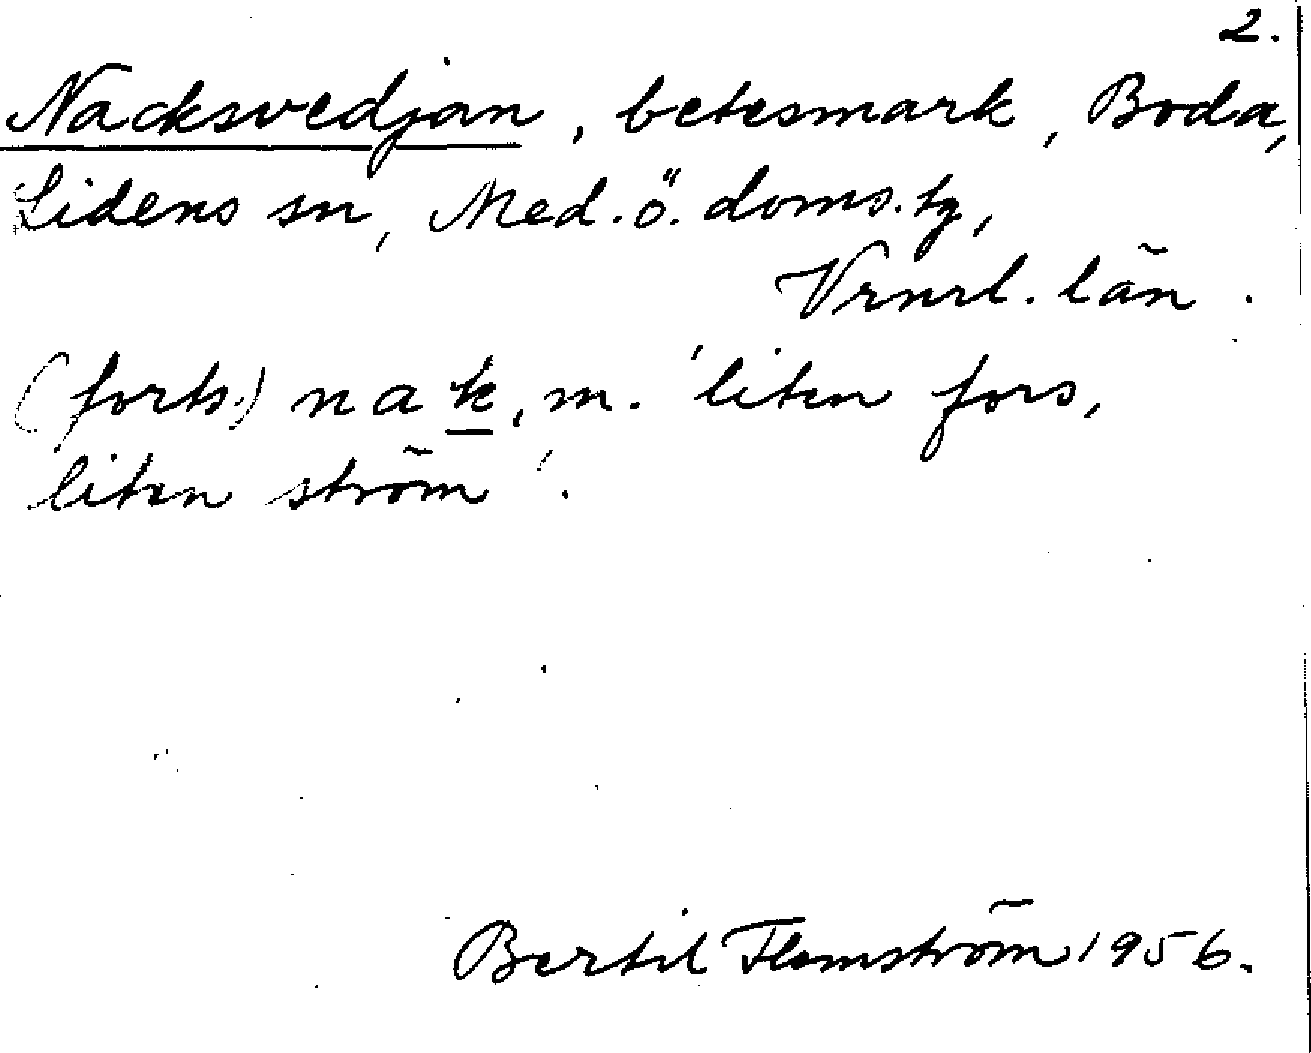 2.
Nacksvedjan, betesmark, Boda,
Lidens sn, Med. ö. doms. tg,
Vrnrl. län.
(forts.) nak, m. 'liten fors,
liten ström'.
Bertil Flemström 1956.